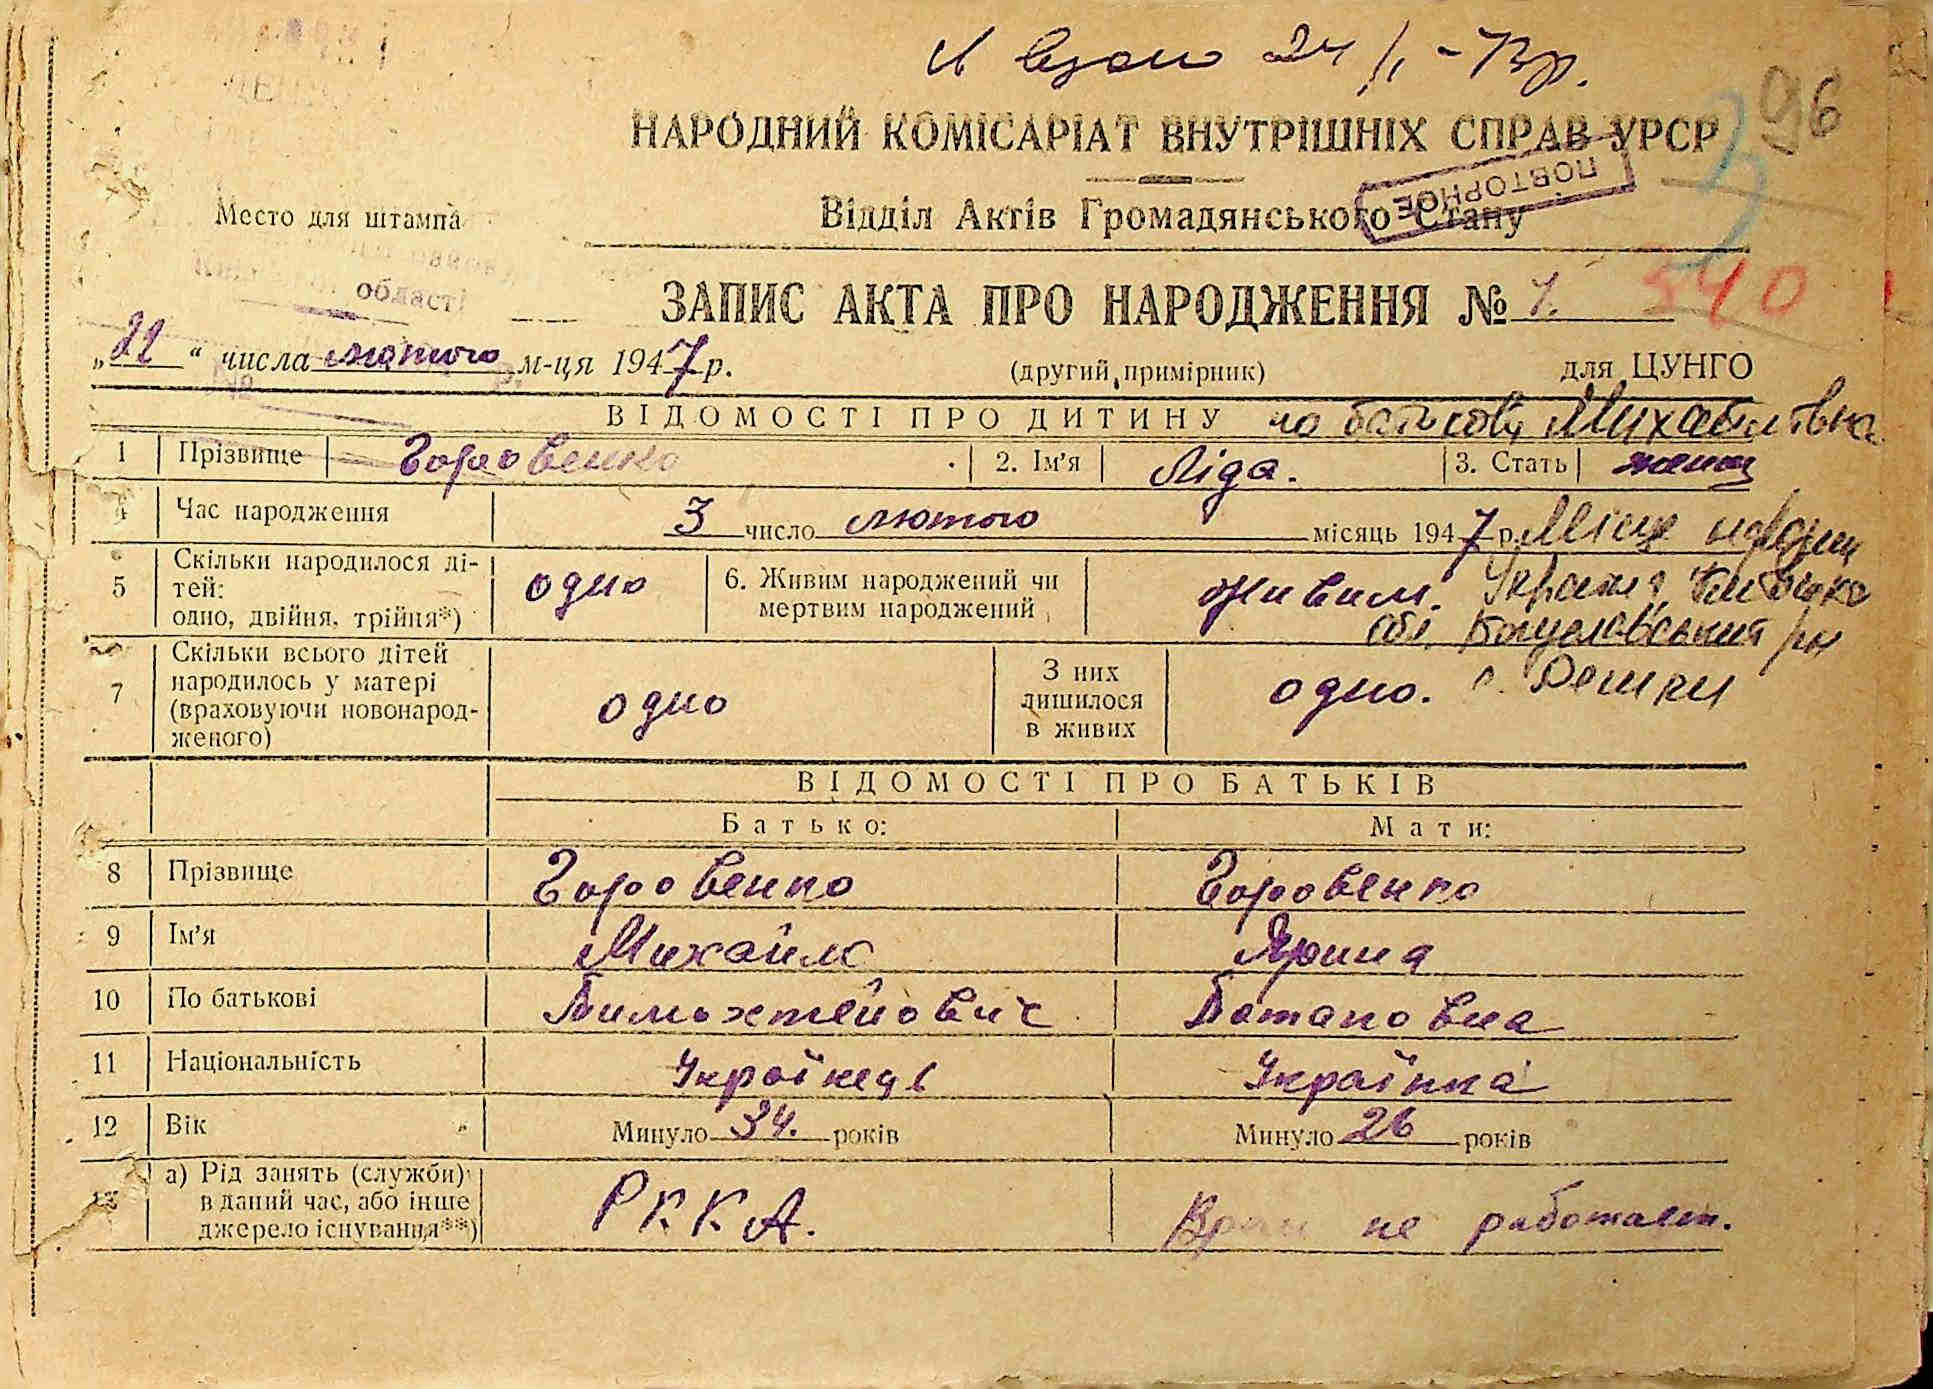 24/I - 73р.
96
НАРОДНИЙ КОМІСАРІАТ ВНУТРІШНІХ СПРАВ УРСР
ПОВТОРНОЕ
Место для штампа
Відділ Актів Громадянського Стану
області
ЗАПИС АКТА ПРО НАРОДЖЕННЯ № 7.
540
„22“ числа лютого м-ця 1947 р.
(другий примірник)
для ЦУНГО
ВІДОМОСТІ ПРО ДИТИНУ по батькові Михайлівна
1 Прізвище Горовенко 2. Ім'я Ліда. 3. Стать женщ
4 Час народження 3 число лютого місяць 1947 р. Місце народж
5 Скільки народилося дітей: одно, двійня, трійня*) одно 6. Живим народжений чи мертвим народжений живим. Україна, Київська
обл. Богуславський р-н
7 Скільки всього дітей народилось у матері (враховуючи новонародженого) одно З них лишилося в живих одно. с. Дешки
ВІДОМОСТІ ПРО БАТЬКІВ
Батько: Мати:
8 Прізвище Горовенко Горовенко
9 Ім'я Михайло Ярина
10 По батькові Тимохтейович Потаповна
11 Національність Українець Українка
12 Вік Минуло 34. років Минуло 26 років
13 а) Рід занять (служби) в даний час, або інше джерело існування**) РККА. не работает.